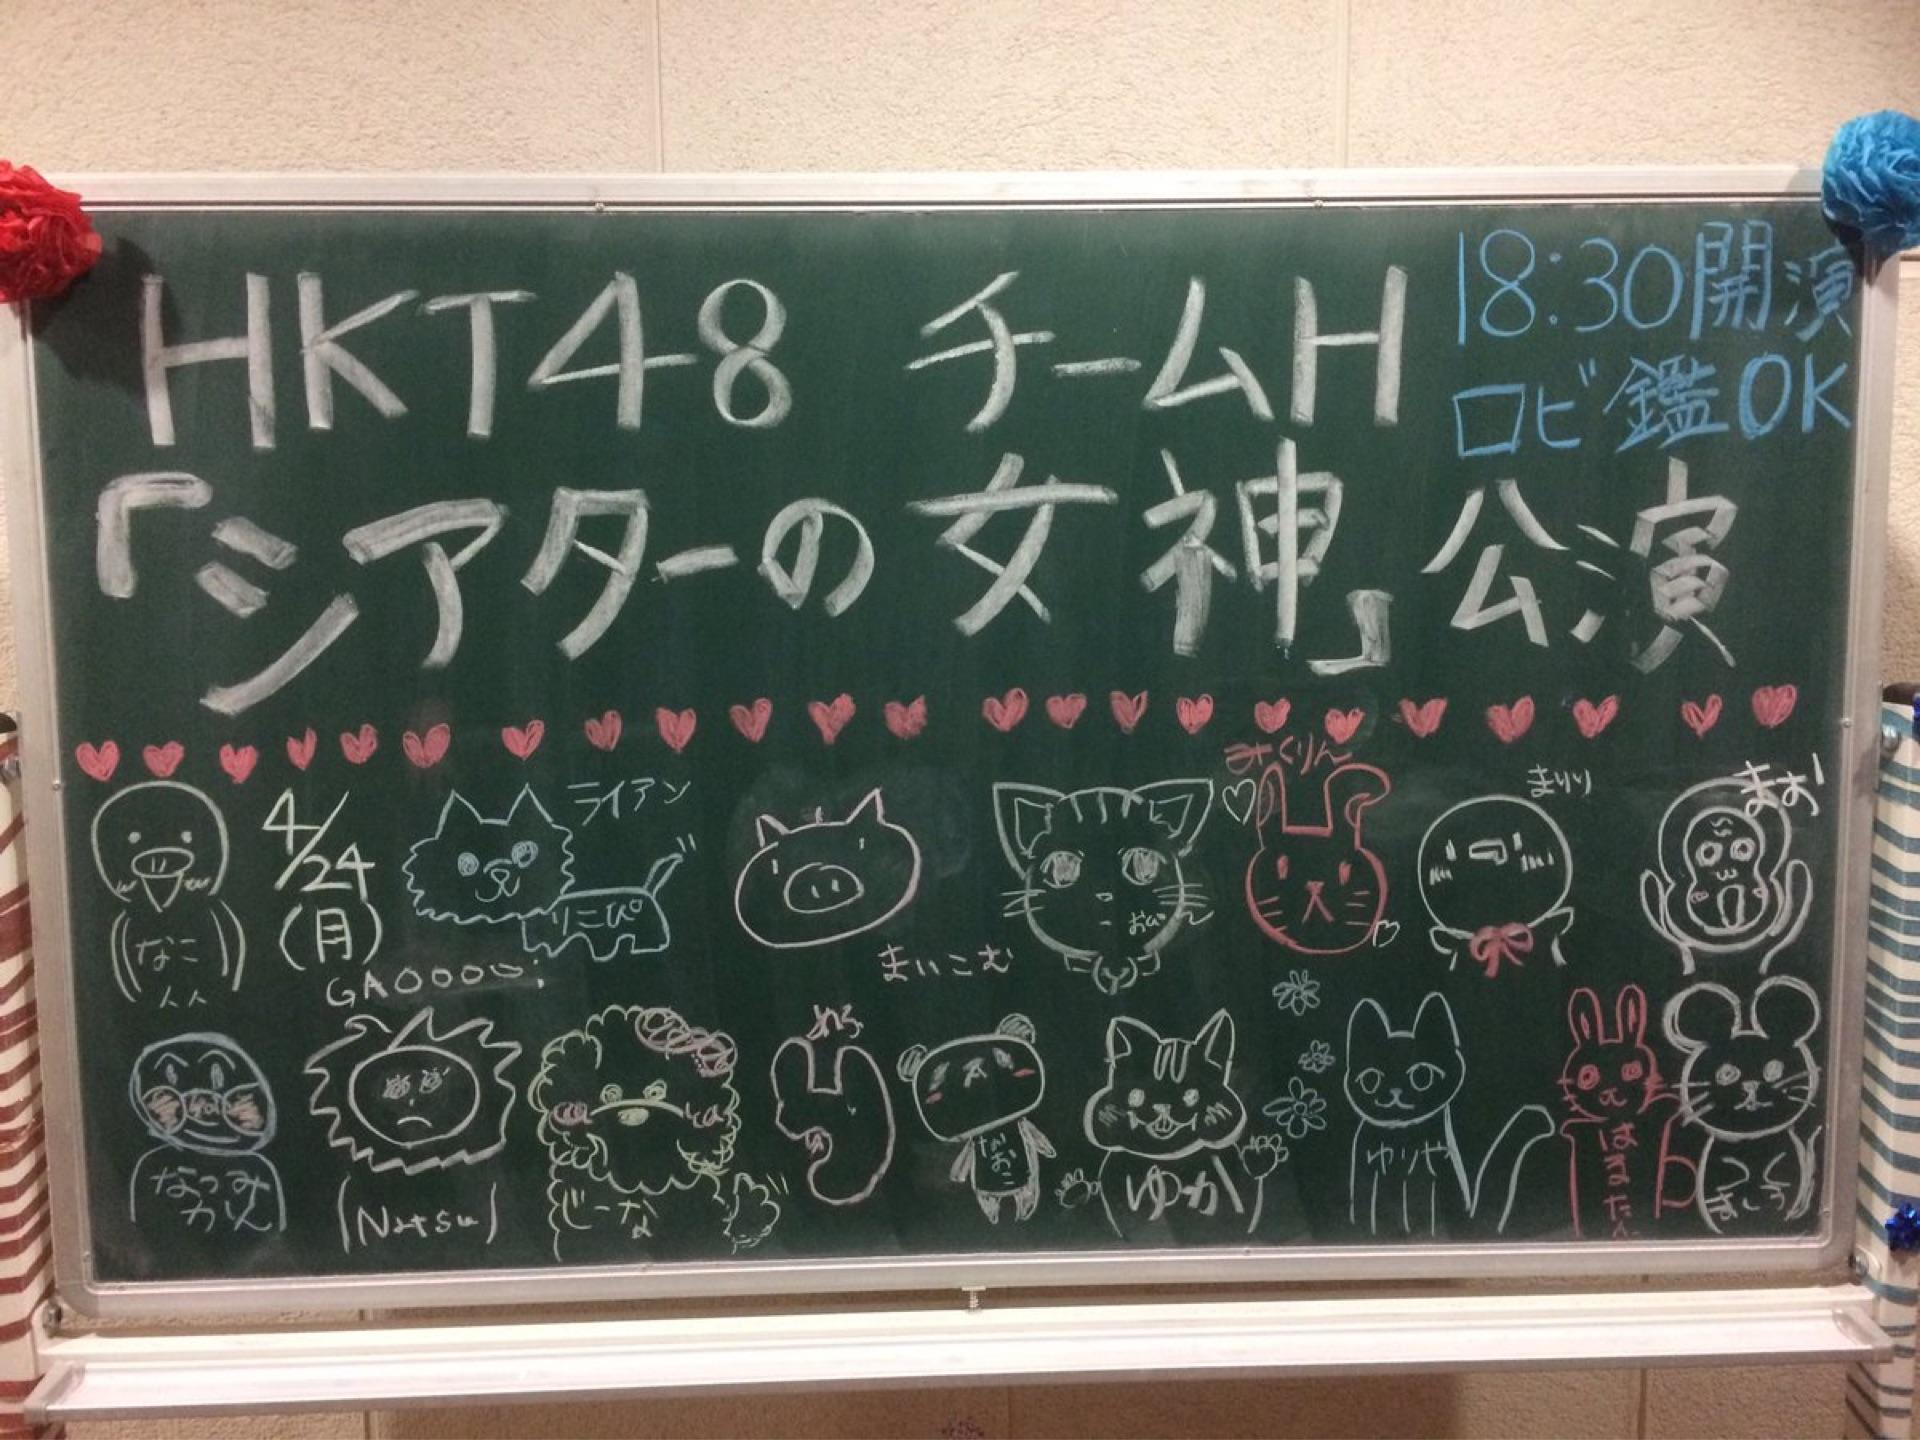 HKT48 チームH
18:30開演
ロビ鑑OK
「シアターの女神」公演
4/24
(月)
なこ
ライアン
りこぴ
まいこむ
おび
みくりん
まりり
まお
GAOOOO
なつみかん
(Natsu)
じーな
める
なおこ
ゆか
ゆりや
はるたん
つくし